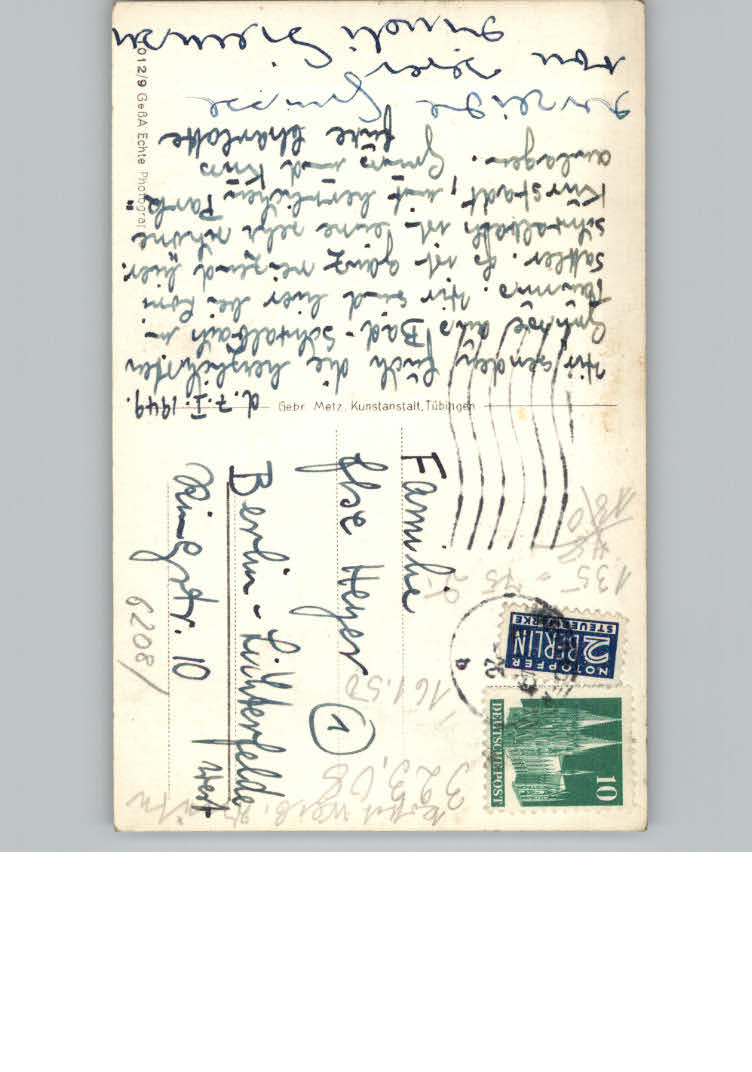 d. 7. I. 1949.
Wir senden Euch die herzlichsten
Grüße aus Bad-Schwalbach i.
Taunus. Wir sind hier bei Kom
sattler. Es ist ganz reizend hier.
Schwalbach ist eine sehr schöne
Kurstadt, mit herrlichen Park
anlagen. Gruss und Kuss
Eure Charlotte
herzliche Grüsse
von
Familie
Ilse Heyer
Berlin - Lichterfelde
West
Ringstr. 10
1
Gebr. Metz, Kunstanstalt, Tübingen
012/9 GeßA Echte Photograr
NOTOPFER
2 BERLIN
STEUERMARKE
10
DEUTSCHE POST
6208/
161.50
323,08
135